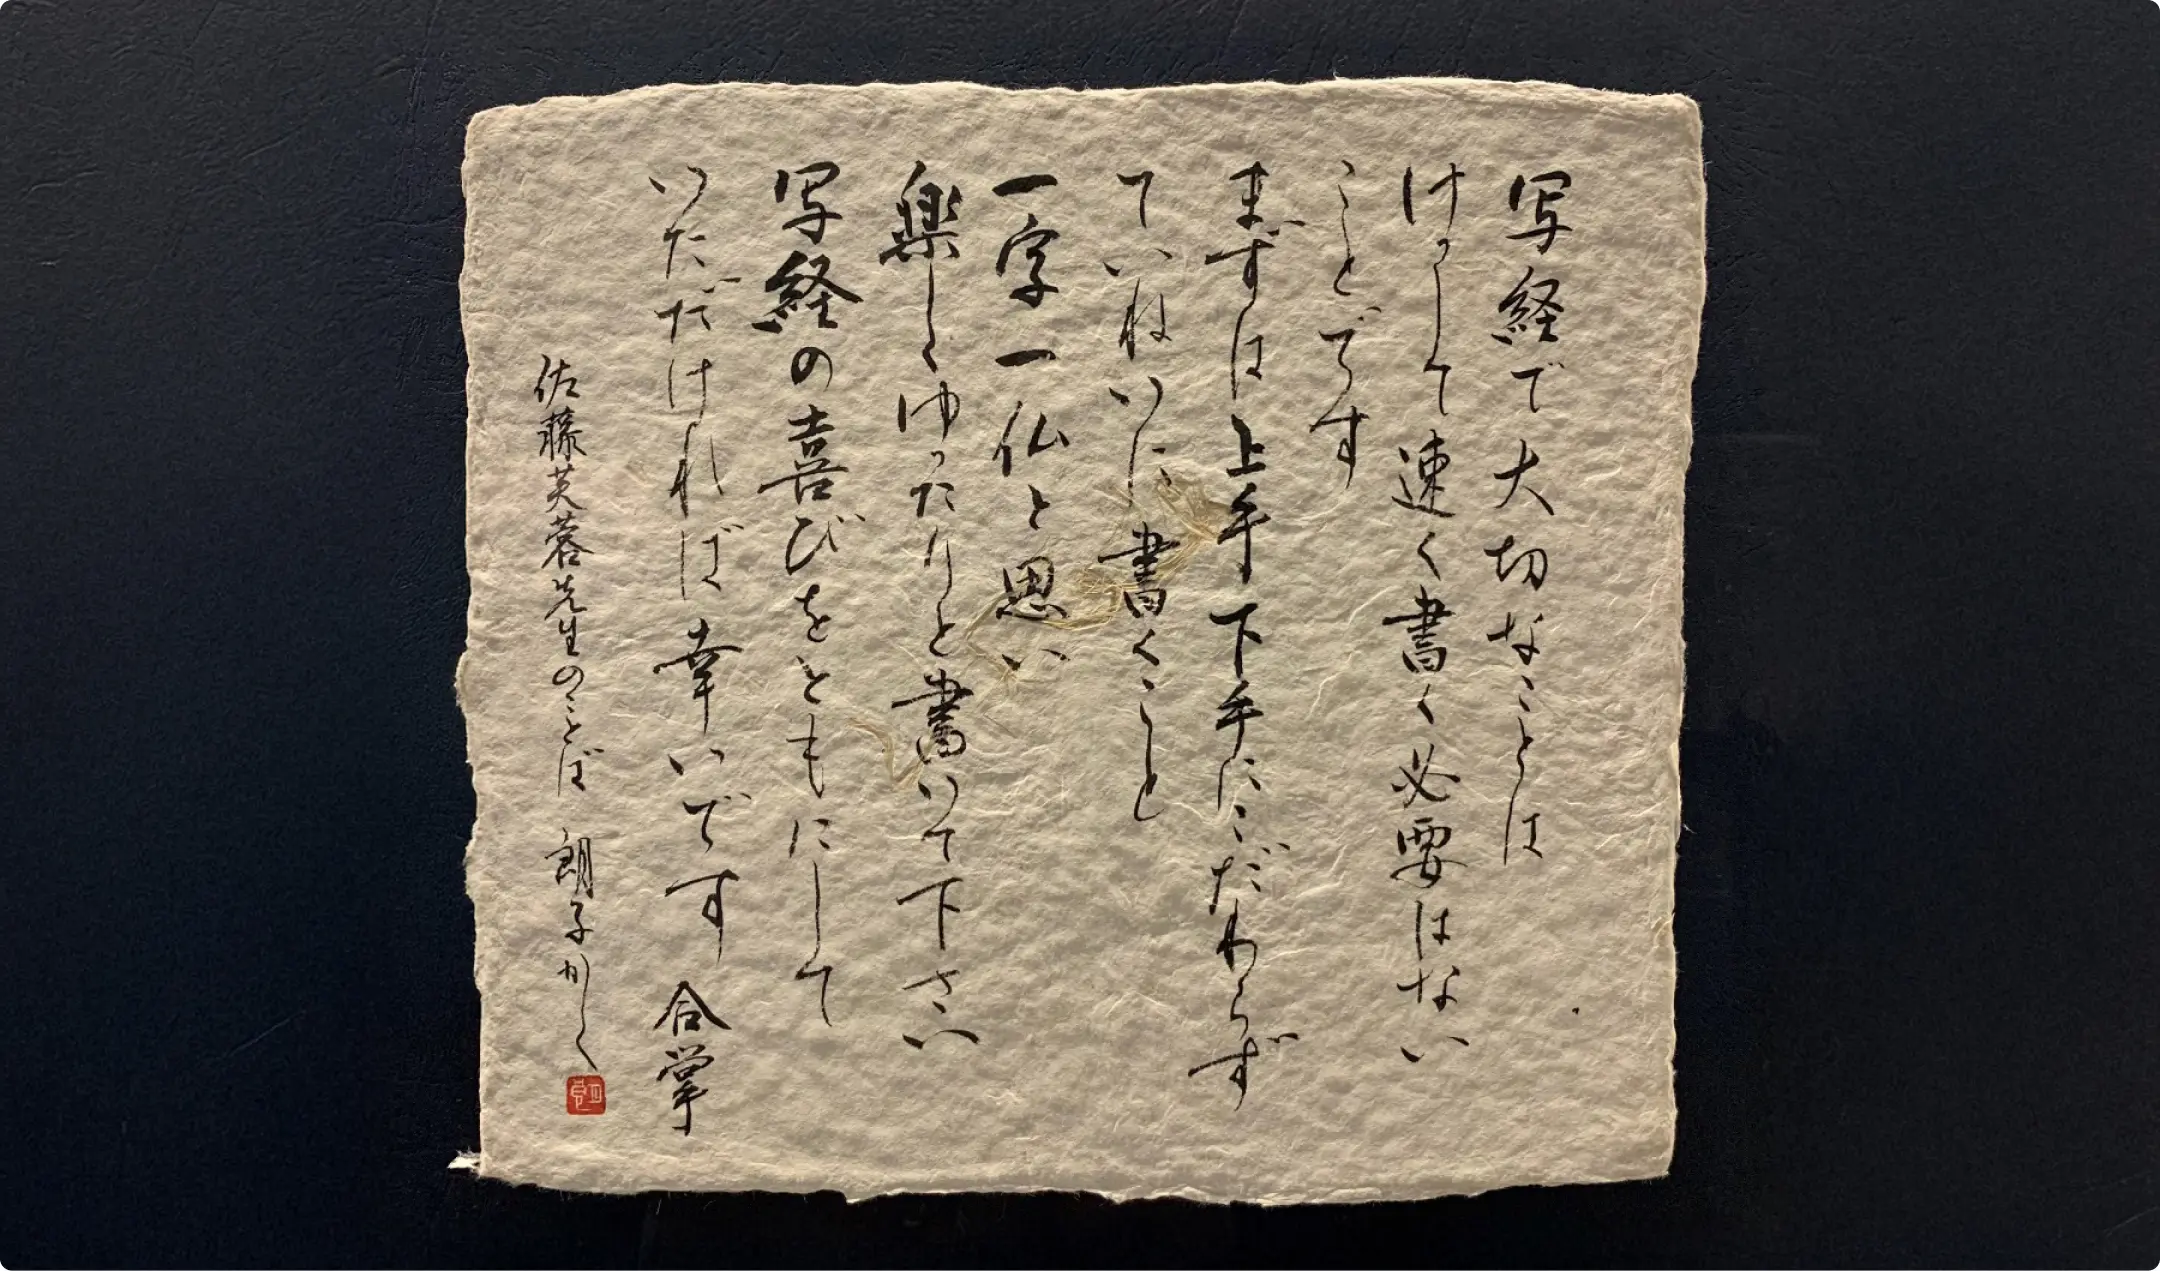 写経で大切なことは
けっして速く書く必要はない
ことです
まずは上手下手にこだわらず
ていねいに書くこと
一字一仏と思い
楽しくゆったりと書いて下さい
写経の喜びをともにして
いただければ幸いです 合掌
佐藤芙蓉先生のことば 朗子かしく